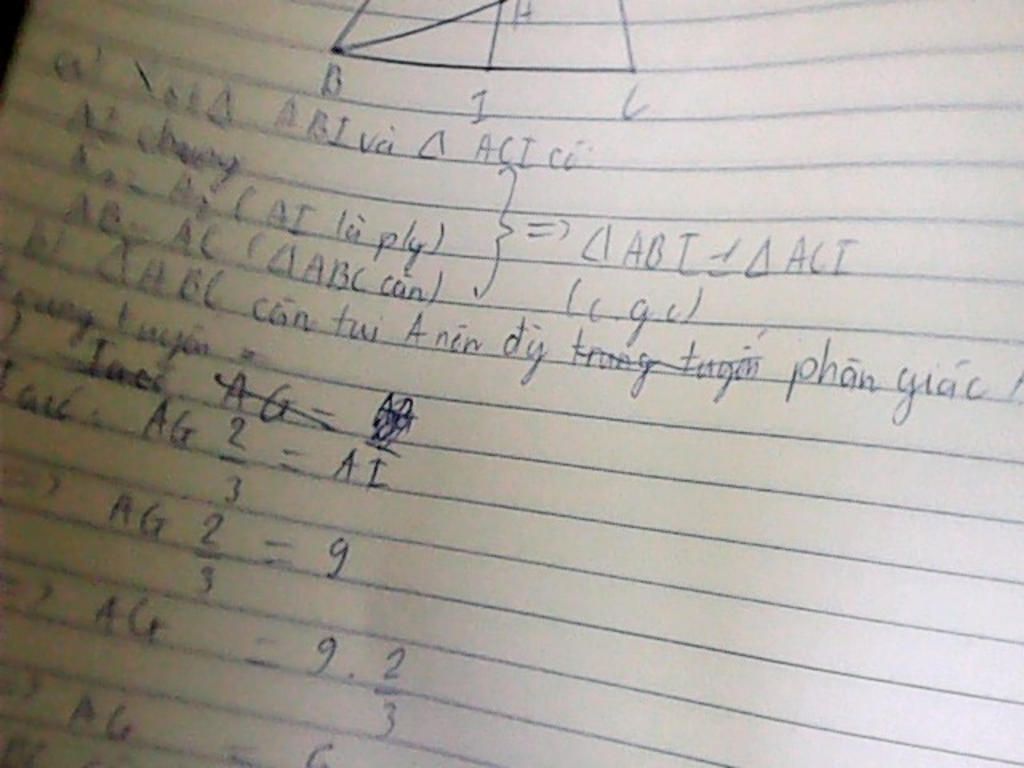 H
B I C
a) Xét Δ ABI và Δ ACI có
AI chung
A₁ = A₂ (AI là p/g)
AB = AC (ΔABC cân)
} => Δ ABI = Δ ACI
(c.g.c)
b) ΔABC cân tại A nên đg trung tuyến phân giác
trung tuyến
AG =
AG 2/3 = AI
=> AG 2/3 = 9
=> AG = 9 . 2/3
=> AG = 6